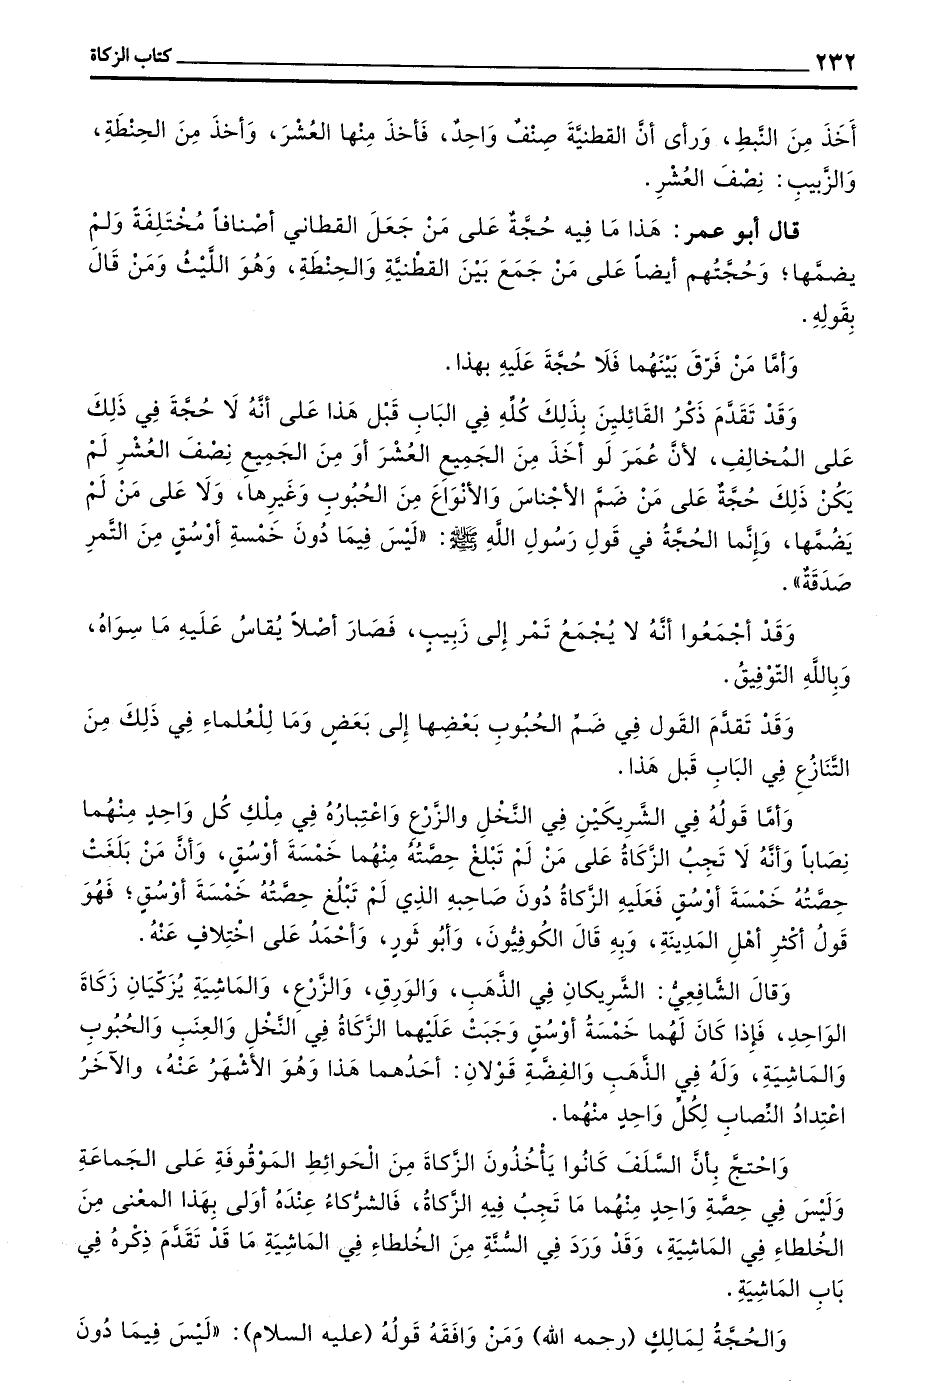 ٢٣٢ كتاب الزكاة
أَخَذَ مِنَ النَّبطِ، وَرأى أنَّ القطنيَّةَ صِنْفٌ وَاحِدٌ، فَأخذَ مِنْها العُشْرَ، وَأخذَ مِنَ الحِنْطَةِ،
وَالزَّبيبِ: نِصْفَ العُشْرِ.
قال أبو عمر: هَذا مَا فِيه حُجَّةٌ عَلى مَنْ جَعَلَ القطاني أصْنافاً مُخْتَلِفَةً وَلمْ
يضمَّها؛ وَحُجَّتُهم أيضاً عَلى مَنْ جَمَعَ بَيْنَ القطْنيَّةِ وَالحِنطَةِ، وَهُوَ اللَّيْثُ وَمَنْ قَالَ
بِقَولِهِ.
وَأمَّا مَنْ فَرّقَ بَيْنَهُما فَلَا حُجَّةَ عَلَيهِ بهذا.
وَقَدْ تَقَدَّمَ ذَكْرُ القَائِلِينَ بِذَلِكَ كُلِّهِ فِي البَابِ قَبْل هَذا عَلى أنَّهُ لَا حُجَّةَ فِي ذَلِكَ
عَلى المُخالِفِ، لأنَّ عُمَرَ لَو أخَذَ مِنَ الجَميعِ العُشْرَ أوَ مِنَ الجَميعِ نِصْفَ العُشْرِ لَمْ
يَكُنْ ذَلِكَ حُجَّةٌ عَلى مَنْ ضَمَّ الأجْناسَ وَالأنْوَاعَ مِنَ الحُبُوبِ وَغَيرِها، وَلَا عَلى مَنْ لَمْ
يَضُمَّها، وَإنَّما الحُجَّةُ في قَولِ رَسُولِ اللَّهِ ﷺ: «لَيْسَ فِيمَا دُونَ خَمْسةِ أوْسُقٍ مِنَ التَّمرِ
صَدَقَةٌ».
وَقَدْ أجْمَعُوا أنَّهُ لا يُجْمَعُ تَمْر إلى زَبِيبٍ، فَصَارَ أصْلاً يُقاسُ عَلَيهِ مَا سِوَاهُ،
وَبِاللَّهِ التّوْفِيقُ.
وَقَدْ تَقدَّمَ القَول فِي ضَمِّ الحُبُوبِ بَعْضِها إلى بَعَضٍ وَمَا لِلْعُلماءِ فِي ذَلِكَ مِنَ
التَّنَازُعِ فِي البَابِ قَبل هَذا.
وَأمَّا قَولُهُ فِي الشَّرِيكَيْنِ فِي النَّخْلِ والزَّرْعِ وَاعْتِبارُهُ فِي مِلْكِ كُل وَاحِدٍ مِنْهُما
نِصَاباً وَأنَّهُ لَا تَجِبُ الزَّكَاةُ عَلى مَنْ لَمْ تَبْلغْ حِصَّتُهُ مِنْهُما خَمْسَةَ أوْسُقٍ، وَأنَّ مَنْ بَلَغَتْ
حِصَّتُهُ خَمْسَةَ أوْسُقٍ فَعَلَيهِ الزَّكاةُ دُونَ صَاحِبهِ الذِي لَمْ تَبْلُغ حِصَّتُهُ خَمْسَةَ أوْسُقٍ؛ فَهُوَ
قَولُ أكْثرِ أهْلِ المَدِينَةِ، وَبِهِ قَالَ الكُوفِيُّونَ، وَأبُو ثَورٍ، وَأحْمَدُ عَلى اخْتِلافٍ عَنْهُ.
وَقَالَ الشَّافِعِيُّ: الشَّرِيكانِ فِي الذَّهَبِ، وَالوَرِقِ، وَالزَّرْعِ، وَالمَاشِيَةِ يُزَكّيَانِ زَكَاةَ
الوَاحِدِ، فَإذا كَانَ لَهُما خَمْسَةُ أوْسُقٍ وَجَبَتْ عَلَيْهِما الزَّكاةُ فِي النَّخْلِ وَالعِنَبِ وَالحُبُوبِ
وَالمَاشِيَةِ، وَلَهُ فِي الذَّهَبِ وَالفِضَّةِ قَوْلانِ: أحَدُهما هَذا وَهُوَ الأشْهَرُ عَنْهُ، والآخَرُ
اعْتِدادُ النِّصابِ لِكُلِّ وَاحِدٍ منْهُما.
وَاحْتجَّ بِأنَّ السَّلَفَ كَانُوا يَأْخُذُونَ الزَّكاةَ مِنَ الْحَوائِطِ المَوْقُوفَةِ عَلى الجَماعَةِ
وَلَيْسَ فِي حِصَّةِ وَاحِدٍ مِنْهُما مَا تَجِبُ فِيهِ الزَّكَاةُ، فَالشركَاءُ عِنْدَهُ أوَلى بِهَذا المَعْنى مِنَ
الخُلطاءِ فِي المَاشِيَةِ، وَقَدْ وَرَدَ فِي السُّنَّةِ مِنَ الخُلطاءِ فِي المَاشِيَةِ مَا قَدْ تَقَدَّمَ ذِكْرهُ فِي
بَابِ المَاشِيَةِ.
وَالحُجَّةُ لِمَالِكٍ (رحمه الله) وَمَنْ وَافَقَهُ قَولُهُ (عليه السلام): «لَيْسَ فِيمَا دُونَ